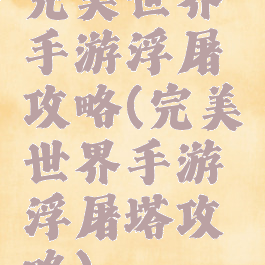 完美世界
手游浮屠
攻略(完美
世界手游
浮屠塔攻
略)